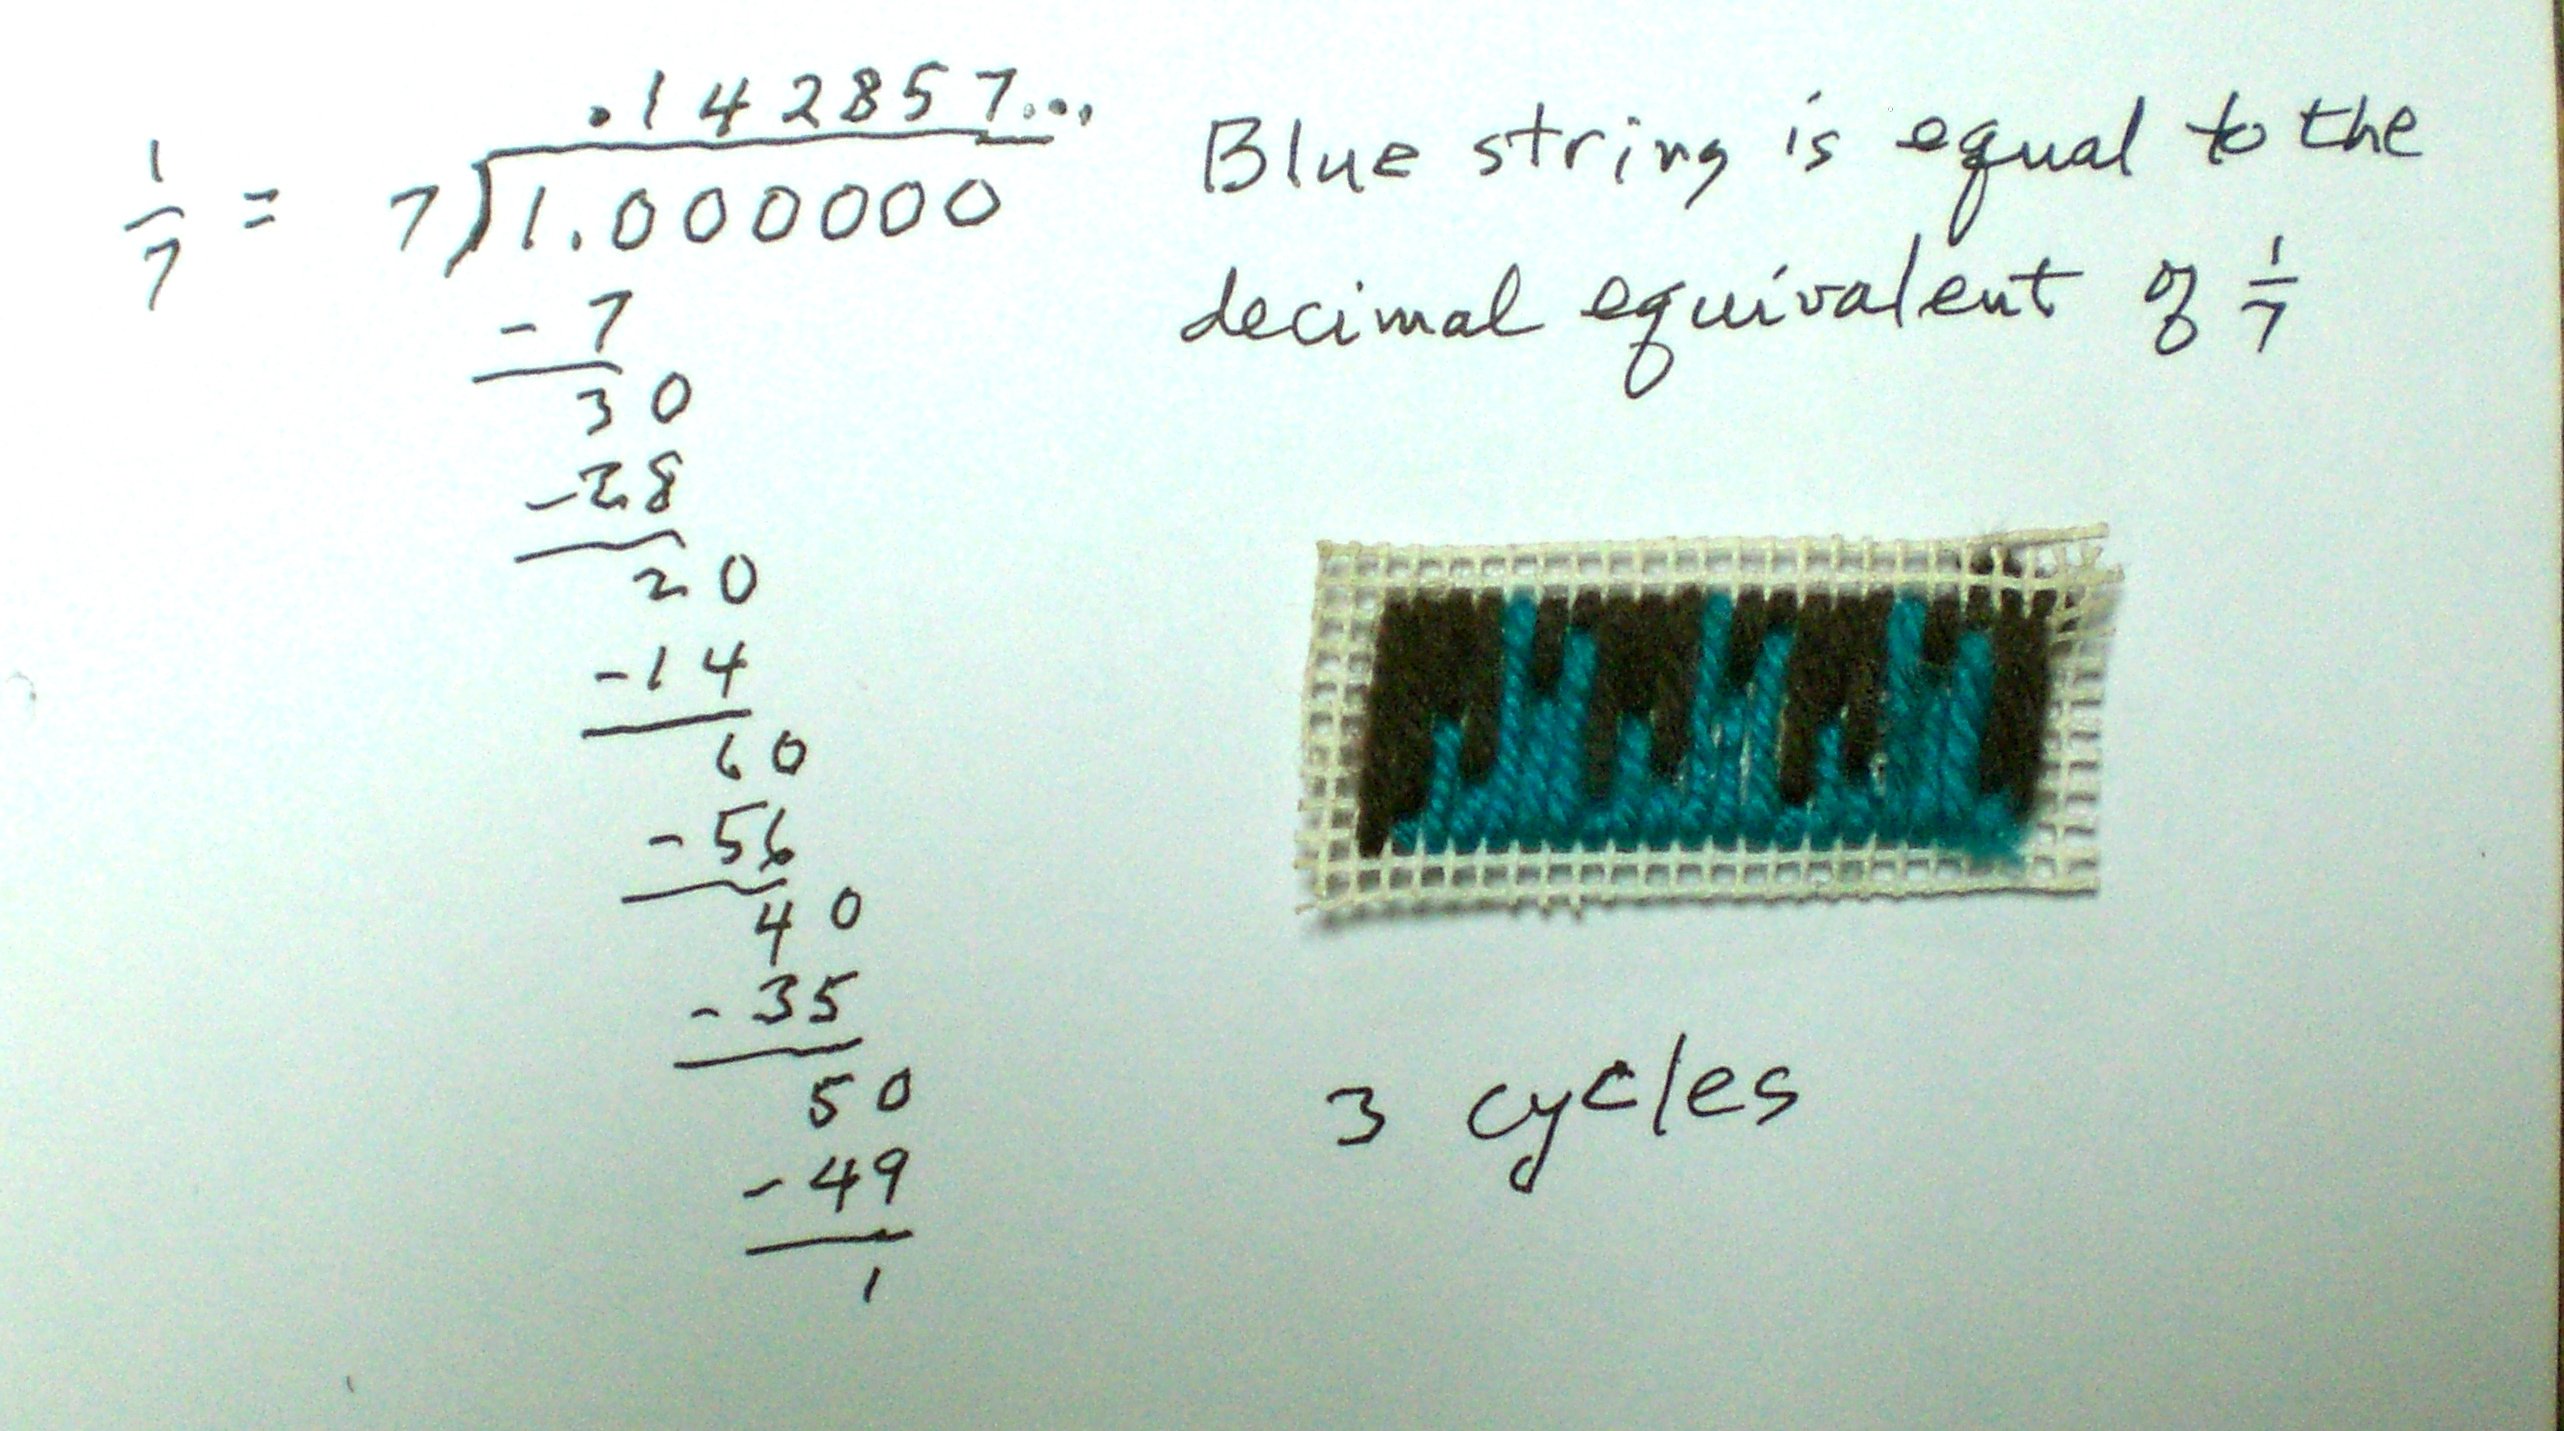 .142857...
1/7 = 7)1.000000
-7
30
-28
20
-14
60
-56
40
-35
50
-49
1
Blue string is equal to the
decimal equivalent of 1/7
3 cycles